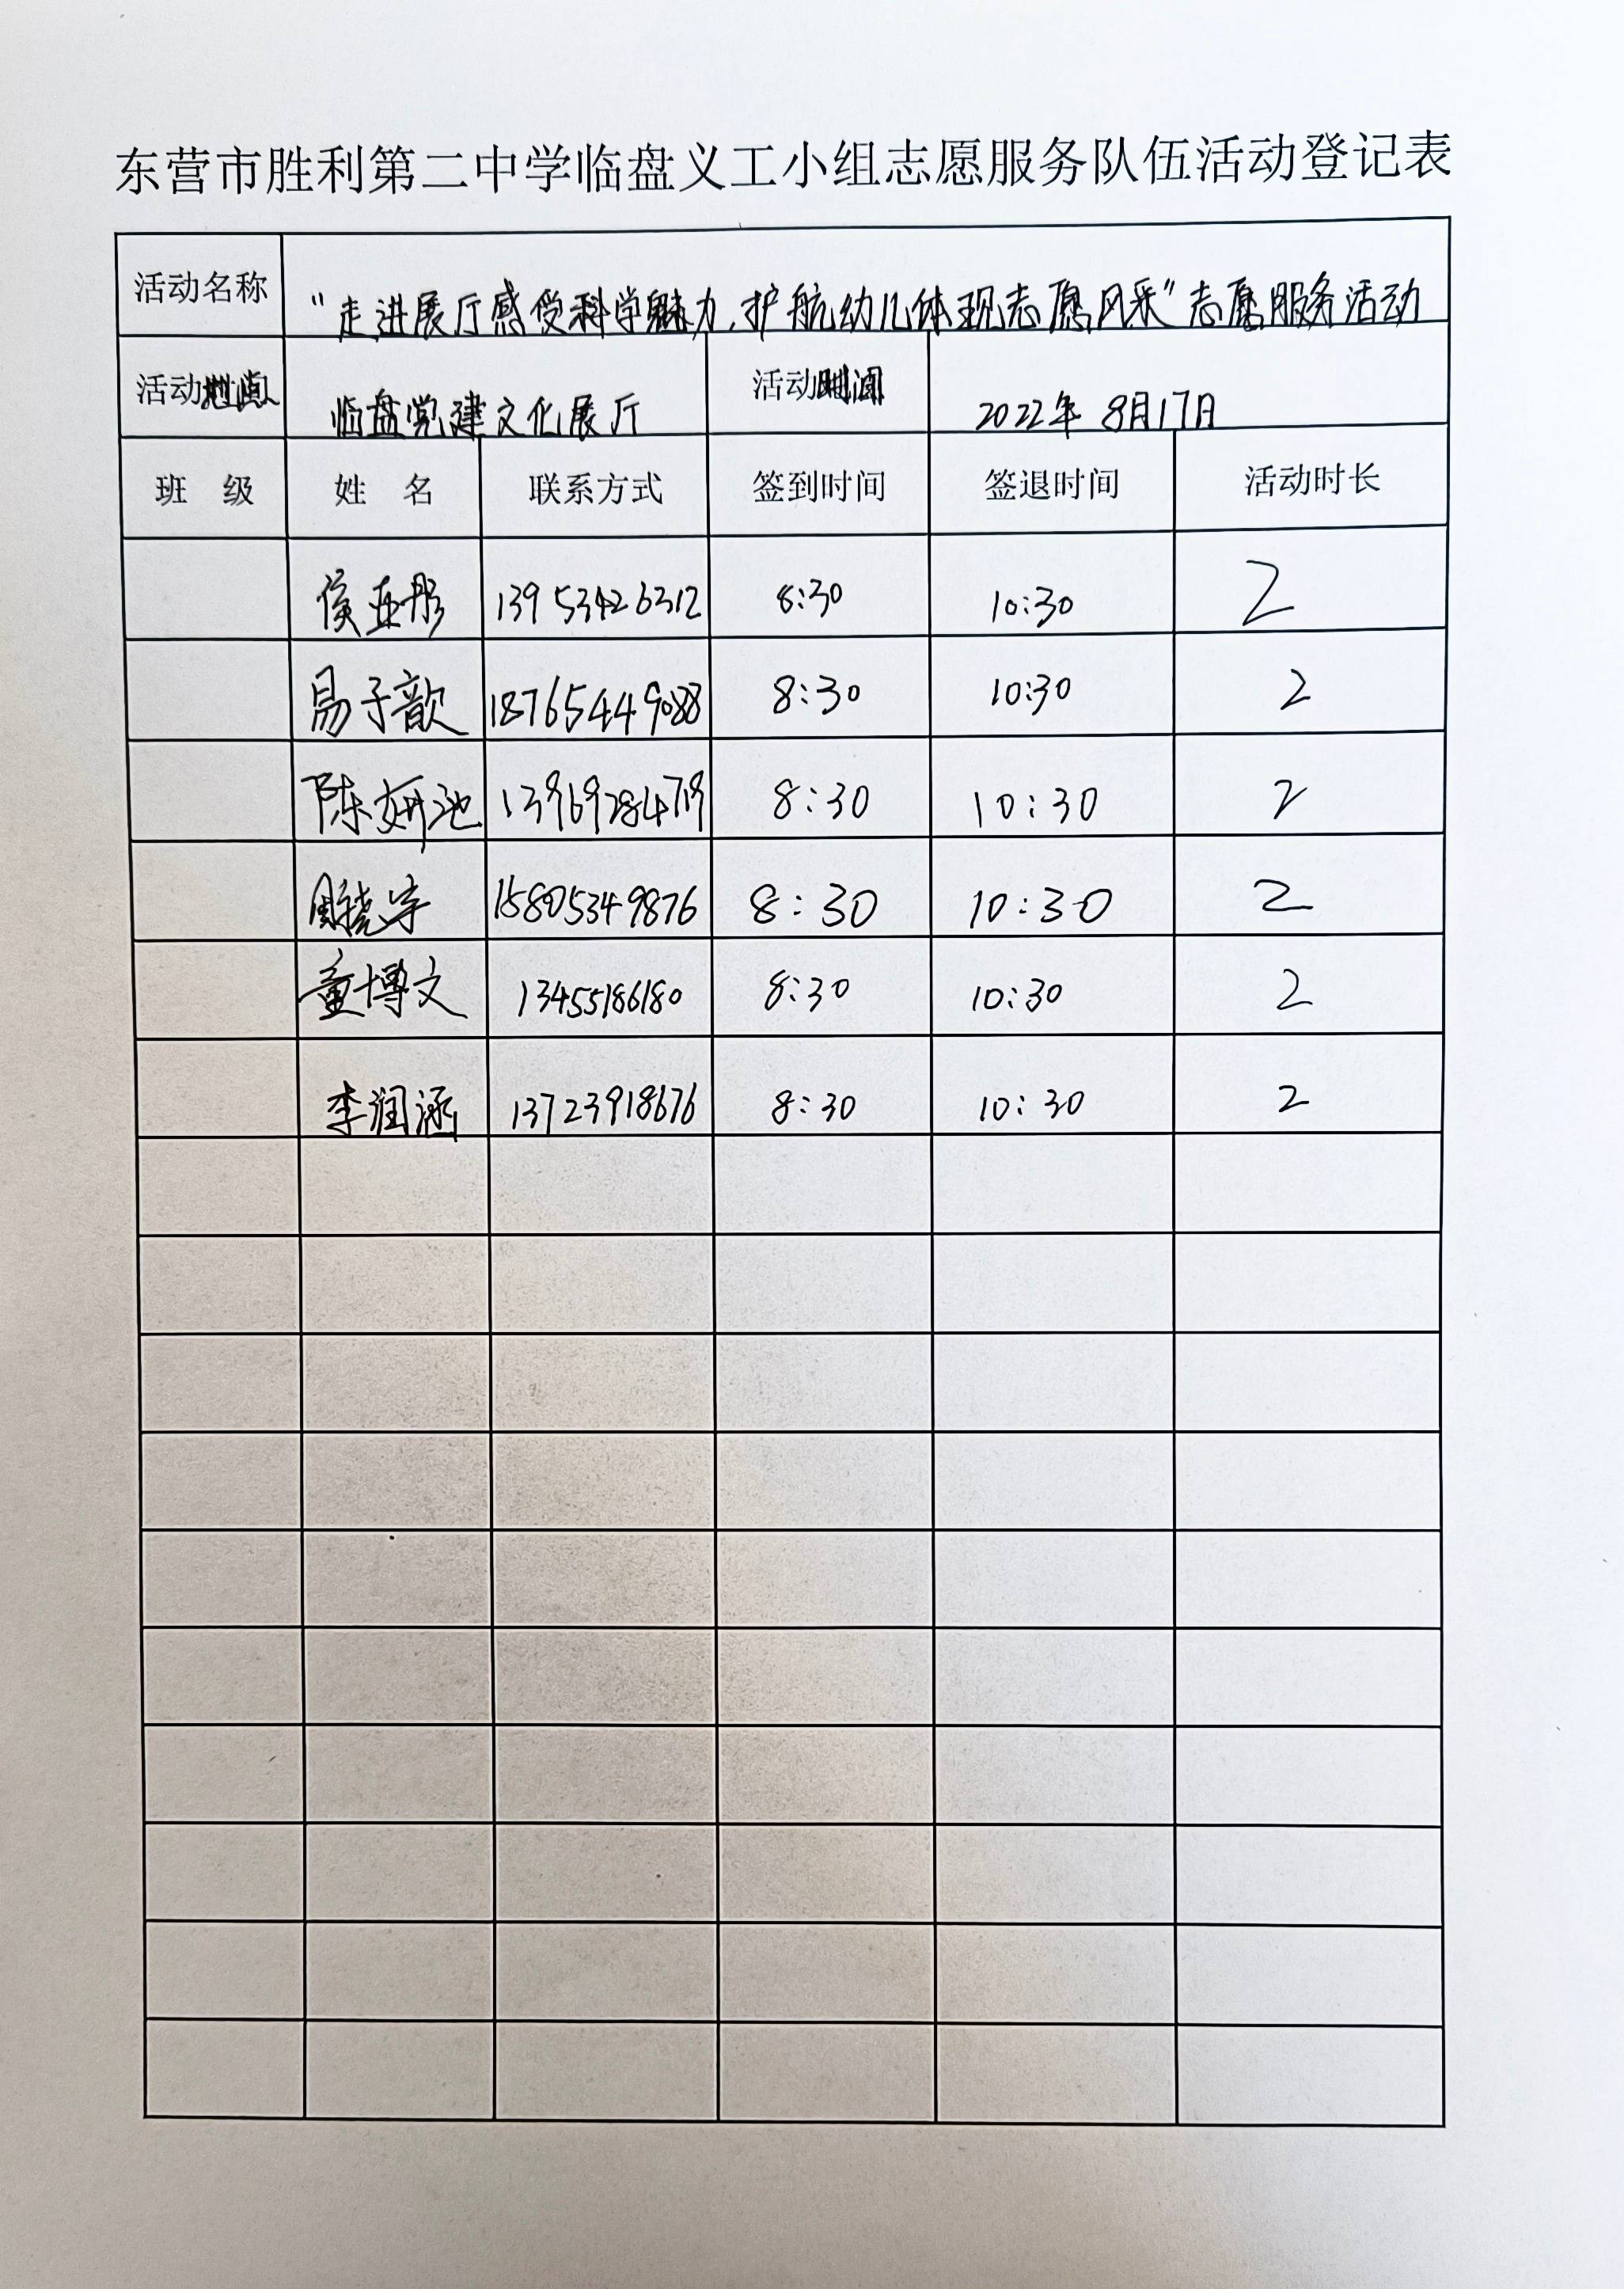 东营市胜利第二中学临盘义工小组志愿服务队伍活动登记表
活动名称 “走进展厅感受科学魅力,护航幼儿体现志愿风采”志愿服务活动
活动地点 临盘党建文化展厅 活动时间 2022年8月17日
班 级 姓 名 联系方式 签到时间 签退时间 活动时长
侯亚彤 13953426312 8:30 10:30 2
易子歆 18765449088 8:30 10:30 2
陈妍池 13969284719 8:30 10:30 2
周晓宇 15805349876 8:30 10:30 2
童博文 13455186180 8:30 10:30 2
李润涵 13723918676 8:30 10:30 2